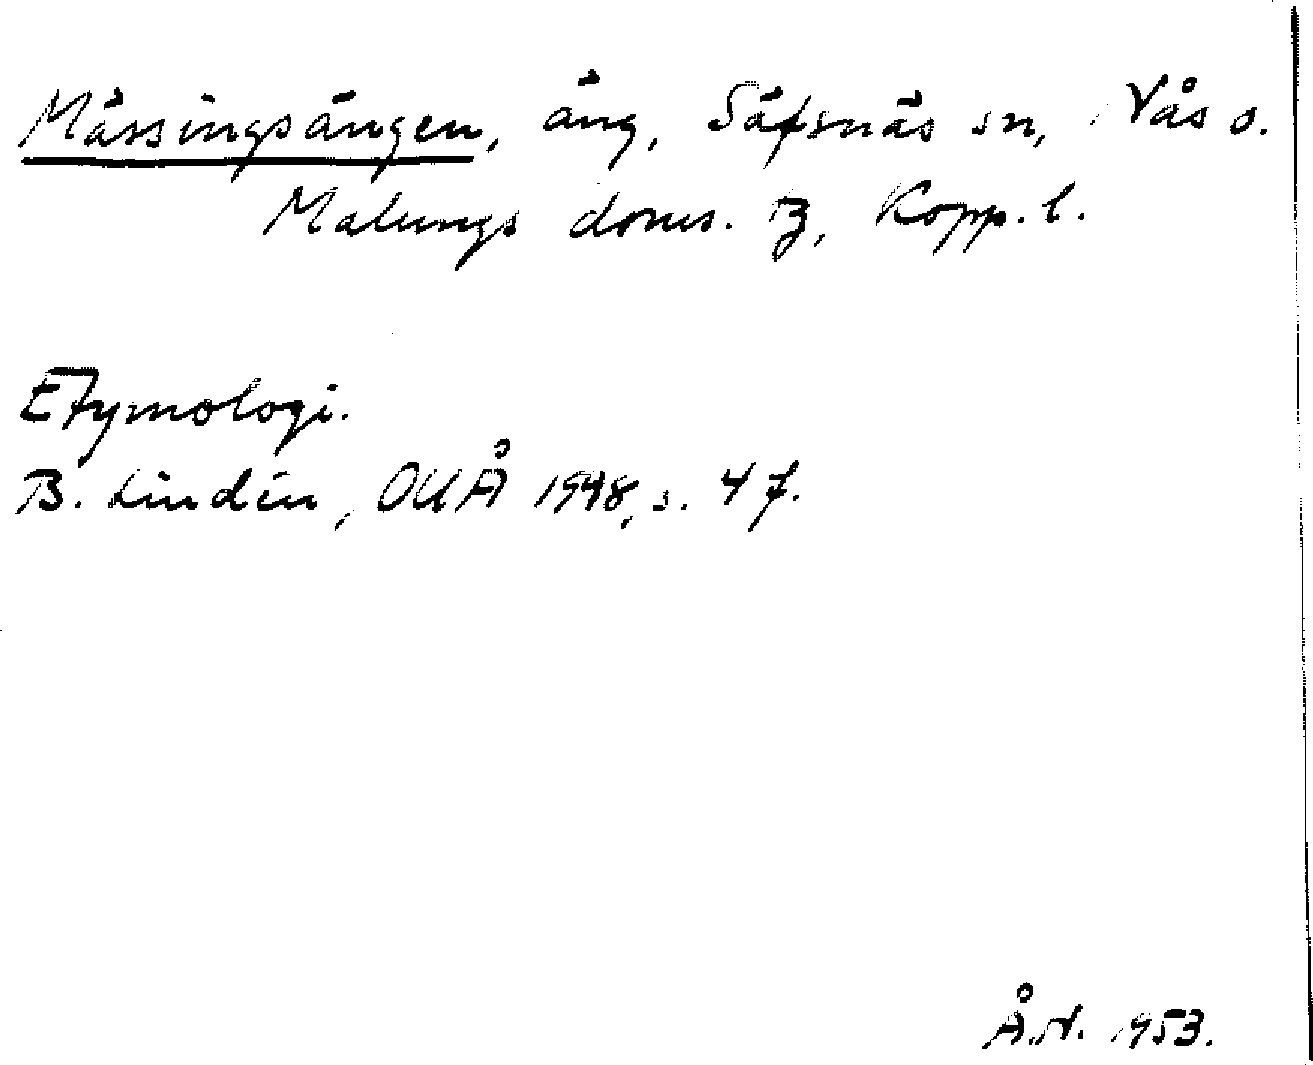 Mässingsängen, äng, Säfsnäs sn, Nås o.
Malungs doms. tg, Kopp. l.
Etymologi.
B. Lindén, OUÅ 1948, s. 47.
Å.N. 1953.